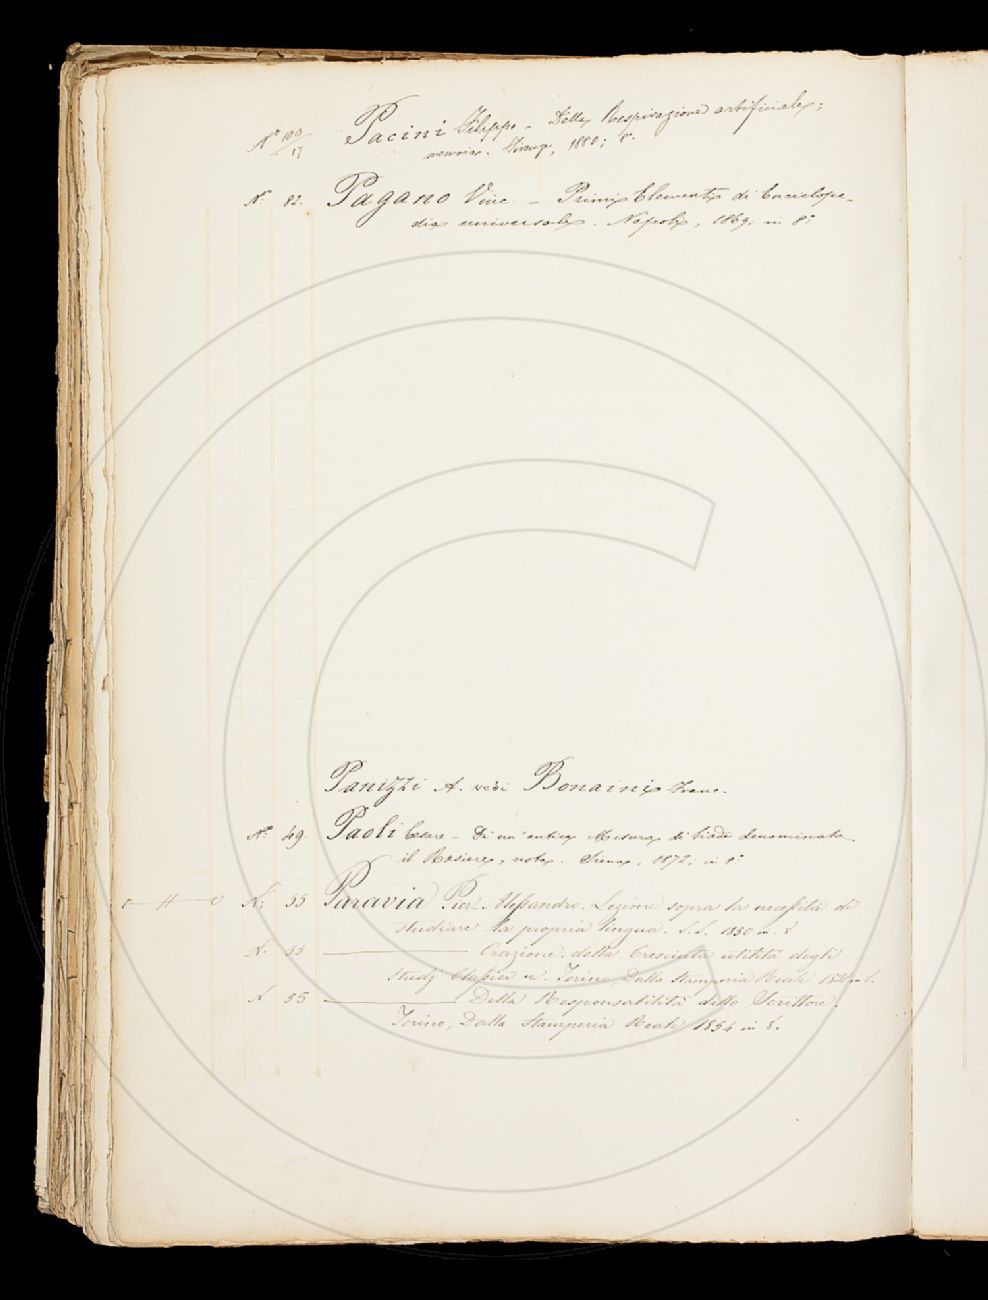 N° 100/17 Pacini Filippo - Della Respirazione artificiale;
memoria. Firenze, 1880; 8°
N° 82. Pagano Vinc. - Primi Elementi di Enciclope-
dia universale. Napoli, 1869; in 8°
Panizzi A. vedi Bonaini Franc.
N° 49. Paoli Cesare - Di un'antica Misura di biade denominata
il Rasiere, nota. Siena, 1872; in 8°
N° 55 Paravia Pier Alessandro. Lezione sopra la necessità di
studiare la propria lingua. S. L. 1850 in 8
N. 55 ——— Orazione della Cresciuta utilità degli
Studj Classici ec. Torino, Dalla Stamperia Reale in 8.
N 55 ——— Della Responsabilità dello Scrittore.
Torino, Dalla Stamperia Reale 1854 in 8.